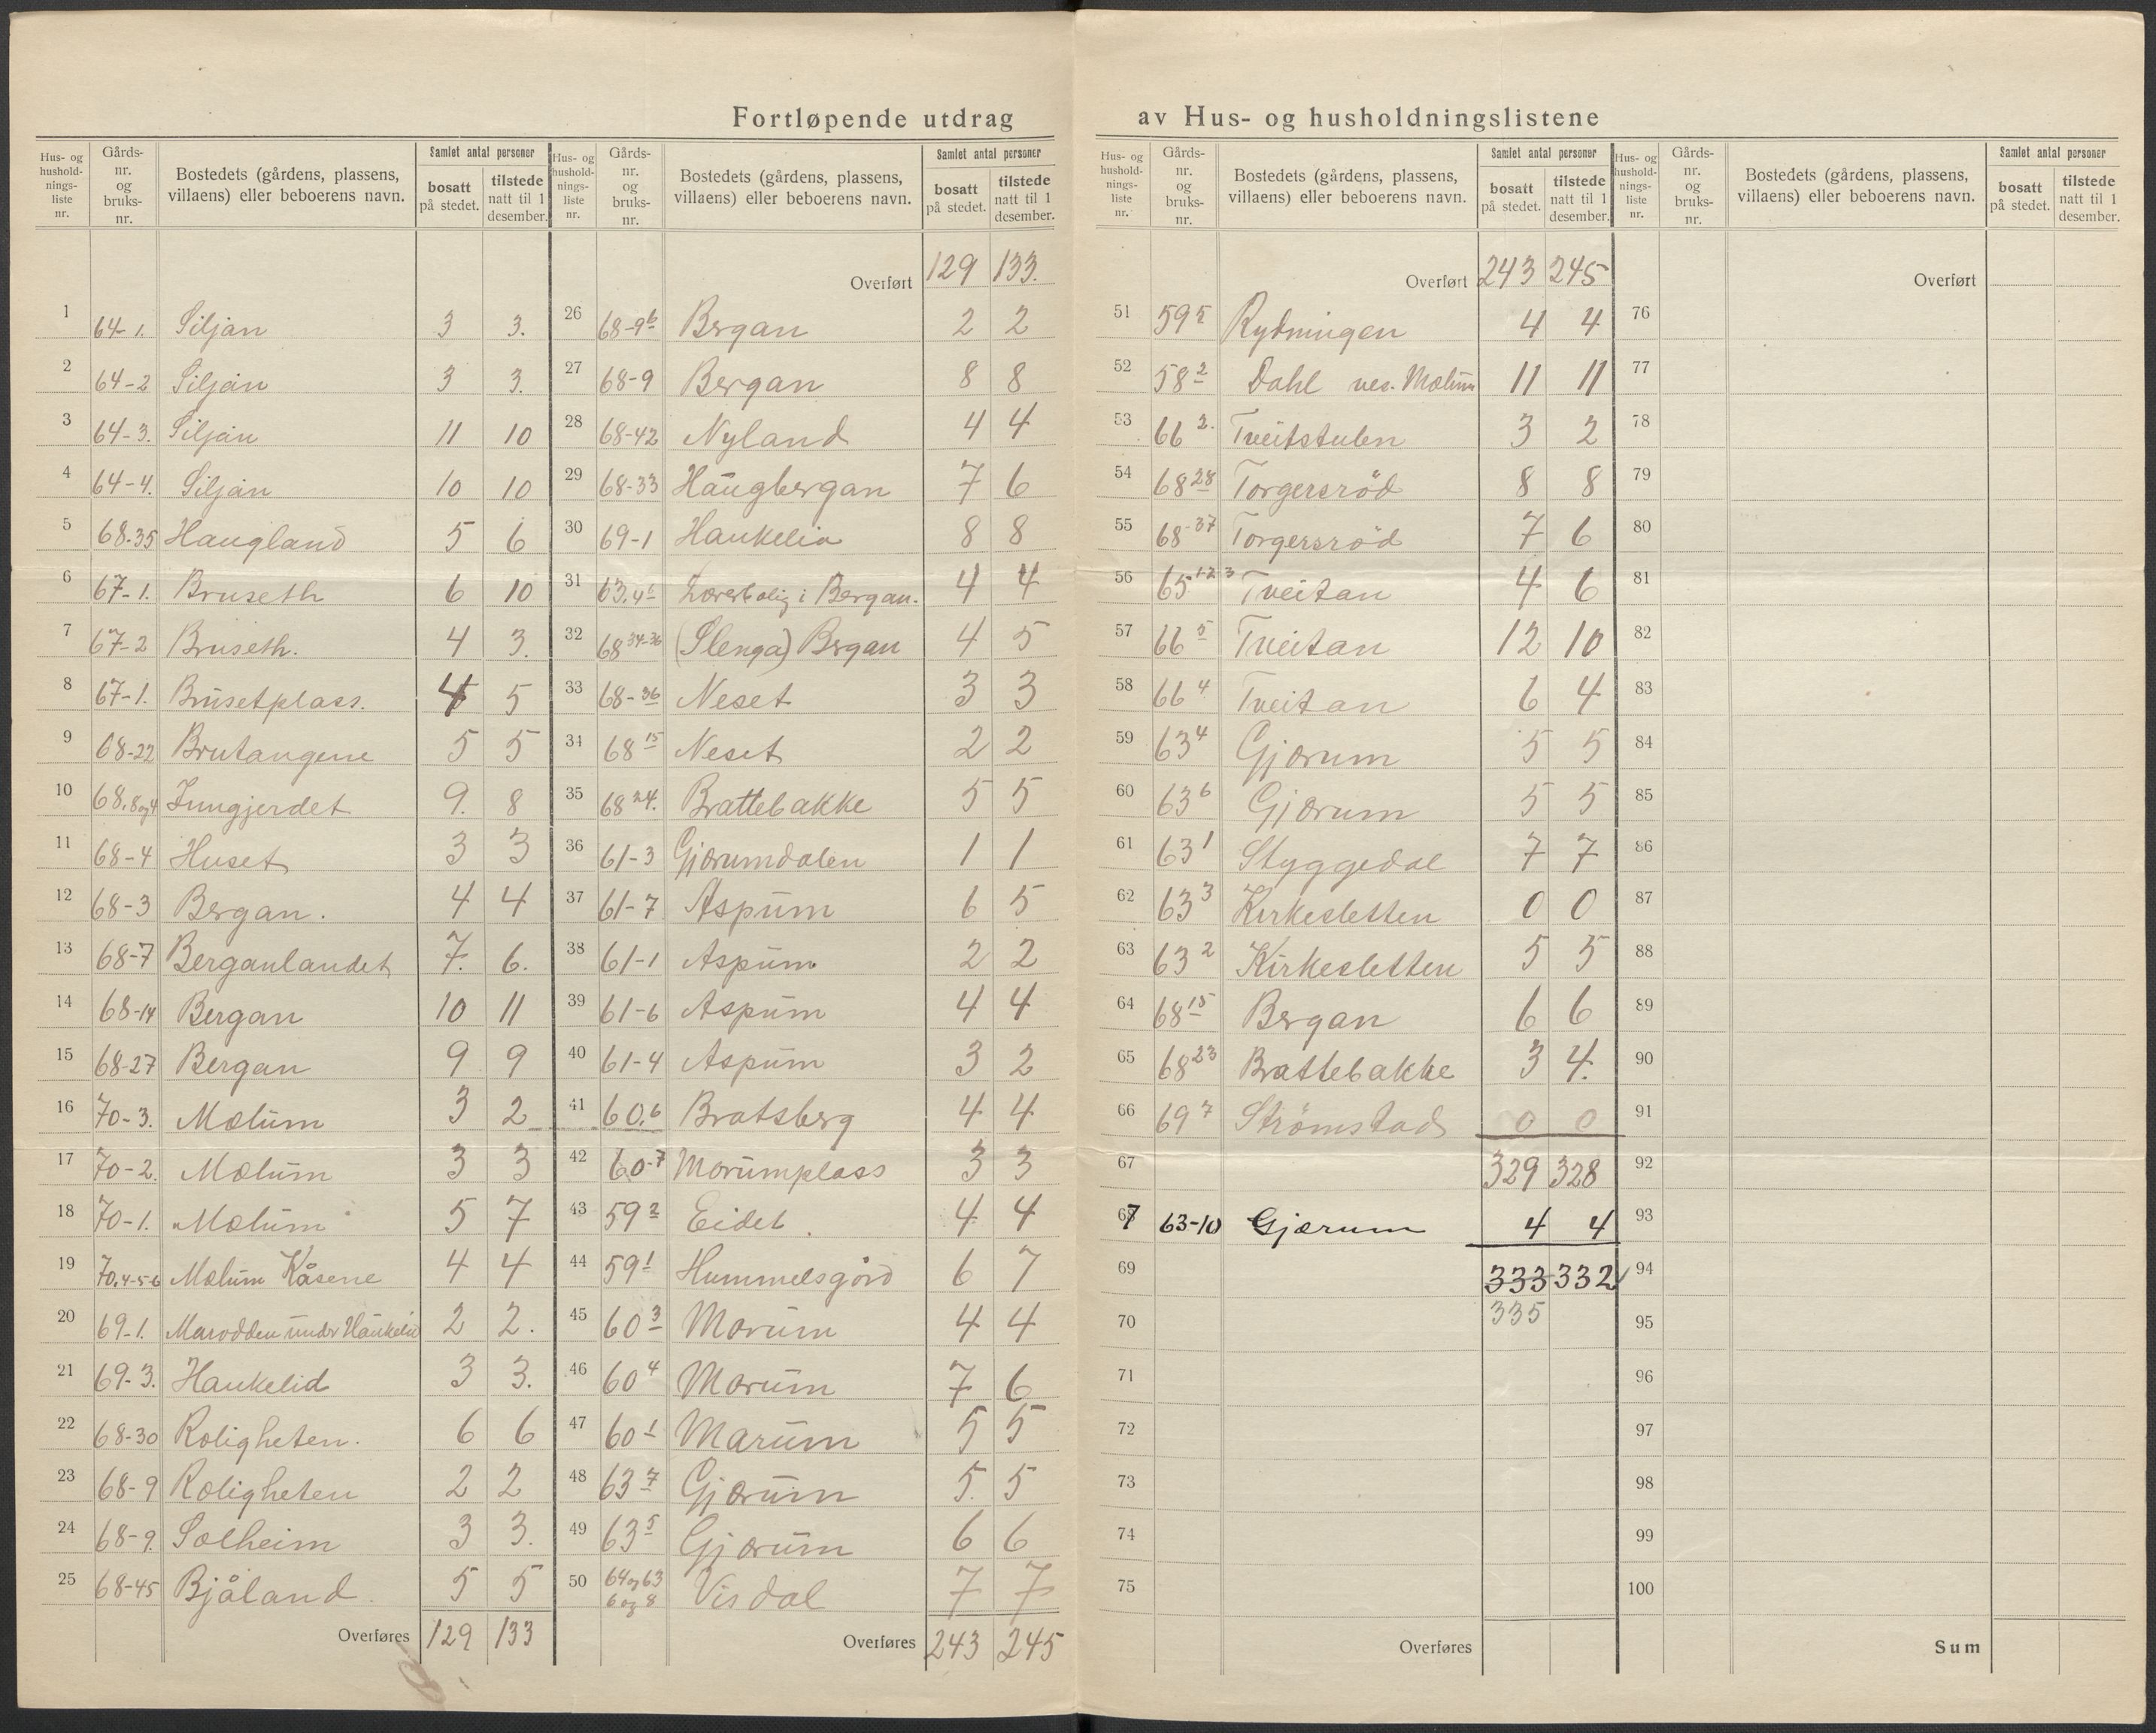 Fortløpende utdrag av Hus- og husholdningslistene
Hus- og hushold-nings-liste nr. | Gårds-nr. og bruks-nr. | Bostedets (gårdens, plassens, villaens) eller beboerens navn. | Samlet antal personer | bosatt på stedet. | tilstede natt til 1 desember.
1 64-1. Siljan 3 3.
2 64-2 Siljan 3 3.
3 64-3. Siljan 11 10
4 64-4. Siljan 10 10
5 68.35 Haugland 5 6
6 67-1. Bruseth 6 10
7 67-2 Bruseth. 4 3.
8 67-1. Brusetplass. 4 5
9 68-22 Brutangene 5 5
10 68.8og4 Inngjerdet 9. 8
11 68-4 Huset 3 3
12 68-3 Bergan. 4 4
13 68-7 Berganlandet 7. 6.
14 68-14 Bergan 10 11
15 68-27 Bergan 9 9
16 70-3. Mælum 3 2
17 70-2. Mælum 3 3
18 70-1. Mælum 5 7
19 70.4-5-6 Mælum Kåsene 4 4
20 69-1. Marodden under Haukelid 2 2.
21 69-3. Haukelid 3 3.
22 68-30 Roligheten. 6 6
23 68-9 Roligheten 2 2
24 68-9. Solheim 3 3.
25 68-45 Bjåland. 5 5
Overføres 129 133
Hus- og hushold-nings-liste nr. | Gårds-nr. og bruks-nr. | Bostedets (gårdens, plassens, villaens) eller beboerens navn. | Samlet antal personer | bosatt på stedet. | tilstede natt til 1 desember.
Overført 129 133.
26 68-9b Bergan 2 2
27 68-9 Bergan 8 8
28 68-42 Nyland 4 4
29 68-33 Haugbergan 7 6
30 69-1 Haukelia 8 8
31 Lærerbolig i Bergan. 4 4
32 68 34-36 (Slenga) Bergan 4 5
33 68-36 Neset 3 3
34 68 15 Neset 2 2
35 68 24. Brattebakke 5 5
36 61-3 Gjærumdalen 1 1
37 61-7 Aspum 6 5
38 61-1 Aspum 2 2
39 61-6 Aspum 4 4
40 61-4 Aspum 3 2
41 60.6 Bratsberg 4 4
42 60-7 Mørumplass 3 3
43 59 2 Eidet. 4 4
44 59 1 Hummelsgård 6 7
45 60 3 Mørum 4 4
46 60 4 Mørum 7 6
47 60 1 Mårum 5 5
48 63 7 Gjærum 5. 5
49 63 5 Gjærum 6 6
50 64og63 6og8 Visdal 7 7
Overføres 243 245
Hus- og hushold-nings-liste nr. | Gårds-nr. og bruks-nr. | Bostedets (gårdens, plassens, villaens) eller beboerens navn. | Samlet antal personer | bosatt på stedet. | tilstede natt til 1 desember.
Overført 243 245
51 59 5 Rydningen 4 4
52 58 2 Dahl ves. Mælum 11 11
53 66 2. Tveitstulen 3 2
54 68 28 Torgersröd 8 8
55 68-37 Torgersröd 7 6
56 65 1-2-3 Tveitan 4 6
57 66 5 Tveitan 12 10
58 66 4 Tveitan 6 4
59 63 4 Gjærum 5 5
60 63 6 Gjærum 5 5
61 63 1 Styggedal 7 7
62 63 3 Kirkesletten 0 0
63 63 2 Kirkesletten 5 5
64 68 15 Bergan 6 6
65 68 23 Brattebakke 3 4.
66 69 7 Strömstad 0 0
67 329 328
67 63-10 Gjærum 4 4
69 333 332
70 335
71
72
73
74
75
Overføres
Hus- og hushold-nings-liste nr. | Gårds-nr. og bruks-nr. | Bostedets (gårdens, plassens, villaens) eller beboerens navn. | Samlet antal personer | bosatt på stedet. | tilstede natt til 1 desember.
Overført
76
77
78
79
80
81
82
83
84
85
86
87
88
89
90
91
92
93
94
95
96
97
98
99
100
Sum